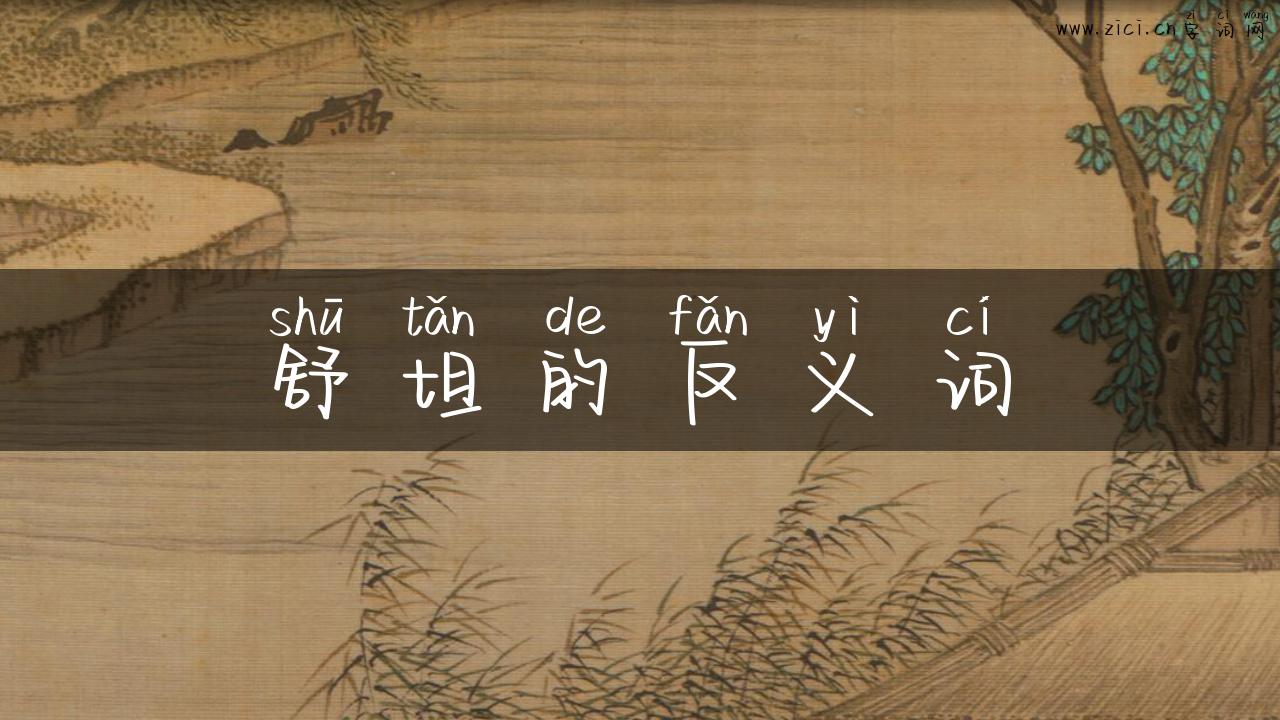 zì cí wǎng
www.zici.cn字词网
shū tǎn de fǎn yì cí
舒坦的反义词